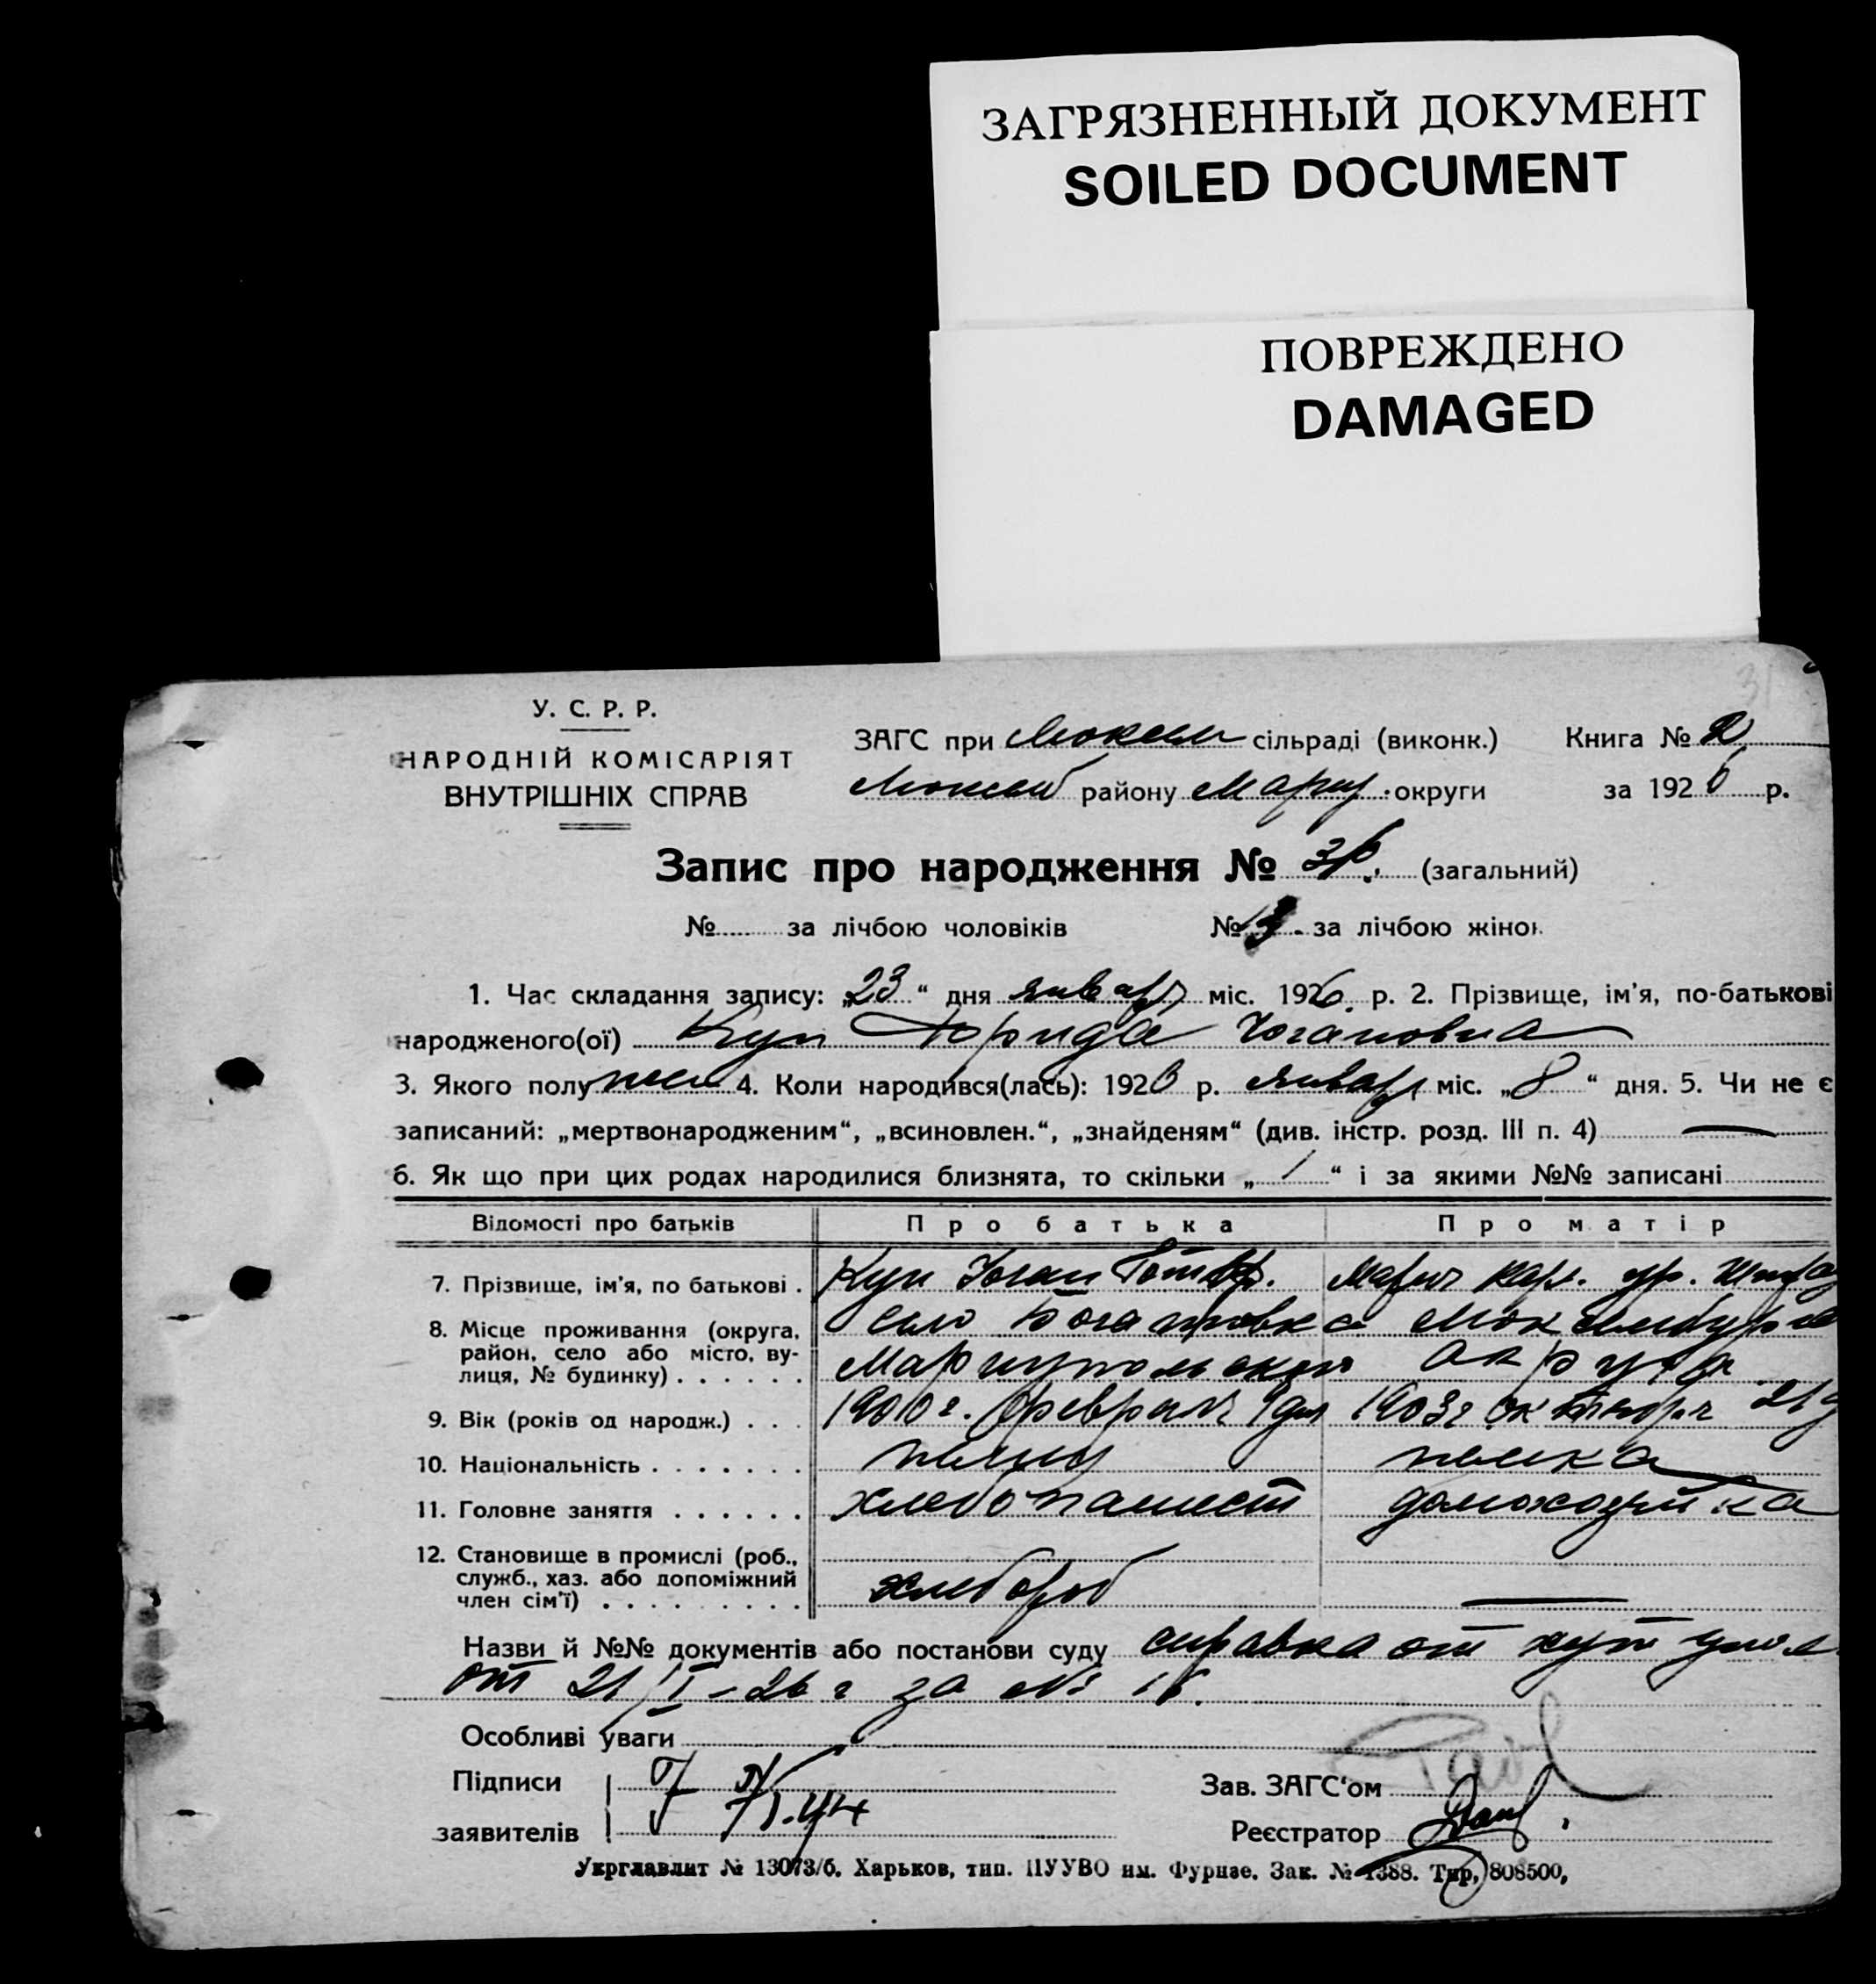 ЗАГРЯЗНЕННЫЙ ДОКУМЕНТ
SOILED DOCUMENT
ПОВРЕЖДЕНО
DAMAGED
31
У. С. Р. Р.
НАРОДНІЙ КОМІСАРІЯТ
ВНУТРІШНІХ СПРАВ
ЗАГС при сільраді (виконк.) Книга № 2
району Мариуп. округи за 1926 р.
Запис про народження № (загальний)
№ за лічбою чоловіків № за лічбою жінок
1. Час складання запису: „23“ дня января міс. 1926 р. 2. Прізвище, ім'я, по-батькові
народженого(ої) Кун Фрида Югановна
3. Якого полу жен 4. Коли народився(лась): 1926 р. января міс. „8“ дня. 5. Чи не є
записаний: „мертвонародженим“, „всиновлен.“, „знайденям“ (див. інстр. розд. III п. 4) —
6. Як що при цих родах народилися близнята, то скільки „ “ і за якими №№ записані
Відомості про батьків Про батька Про матір
7. Прізвище, ім'я, по батькові . Кун Юган Мария Карл. ур.
8. Місце проживання (округа, село
район, село або місто, ву- Мариупольского округа
лиця, № будинку) . . . . . .
9. Вік (років од народж.) . . . 1900 г. февраля 1903 г октября 21
10. Національність . . . . . . . немец немка
11. Головне заняття . . . . . . хлебопашест домохозяйка
12. Становище в промислі (роб.,
служб., хаз. або допоміжний хлебороб —
член сім'ї) . . . . . . . . .
Назви й №№ документів або постанови суду справка от хут
от 21/I-26 г за №
Особливі уваги
Підписи
заявителів
Зав. ЗАГС'ом
Реєстратор
Укрглавлит № 13073/б. Харьков, тип. ПУУВО им. Фрунзе. Зак. № 1388. Тир. 808500,